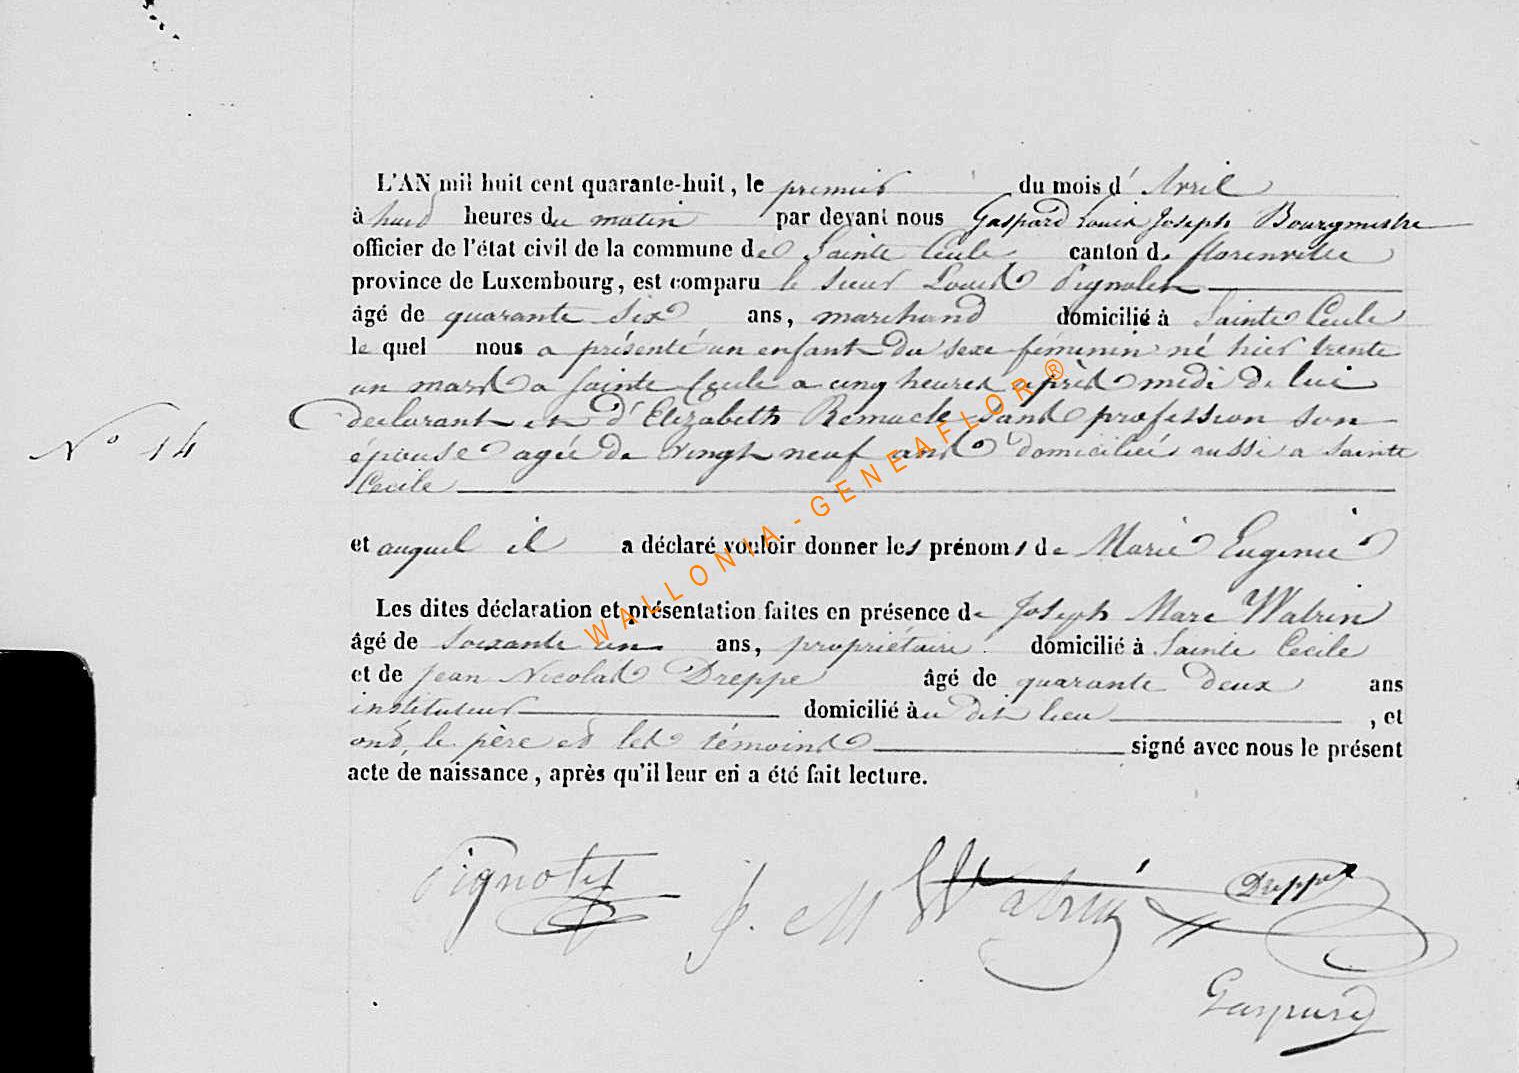 L'AN mil huit cent quarante-huit, le premier du mois d' Avril
à huit heures du matin par devant nous Gaspard Louis Joseph Bourgmestre
officier de l'état civil de la commune de Sainte Cecile canton de florenville
province de Luxembourg, est comparu le sieur Louis Pignolet
âgé de quarante six ans, marchand domicilié à Sainte Cecile
le quel nous a présenté un enfant du sexe féminin né hier trente
un mars a Sainte Cecile a cinq heures après midi de lui
declarant et d'Elizabeth Remacle sans profession son
épouse agée de vingt neuf ans domiciliés aussi a Sainte
N° 14
Cecile
et auquel il a déclaré vouloir donner les prénoms de Marie Eugenie
Les dites déclaration et présentation faites en présence de Joseph Marc Watrin
âgé de soixante un ans, propriétaire domicilié à Sainte Cécile
et de Jean Nicolas Dreppe âgé de quarante deux ans
instituteur domicilié au dit lieu, et
ont, le père et les témoins signé avec nous le présent
acte de naissance, après qu'il leur en a été fait lecture.
Pignolet J. M Watrin Dreppe
Gaspard
WALLONIA-GENEAFLOR®